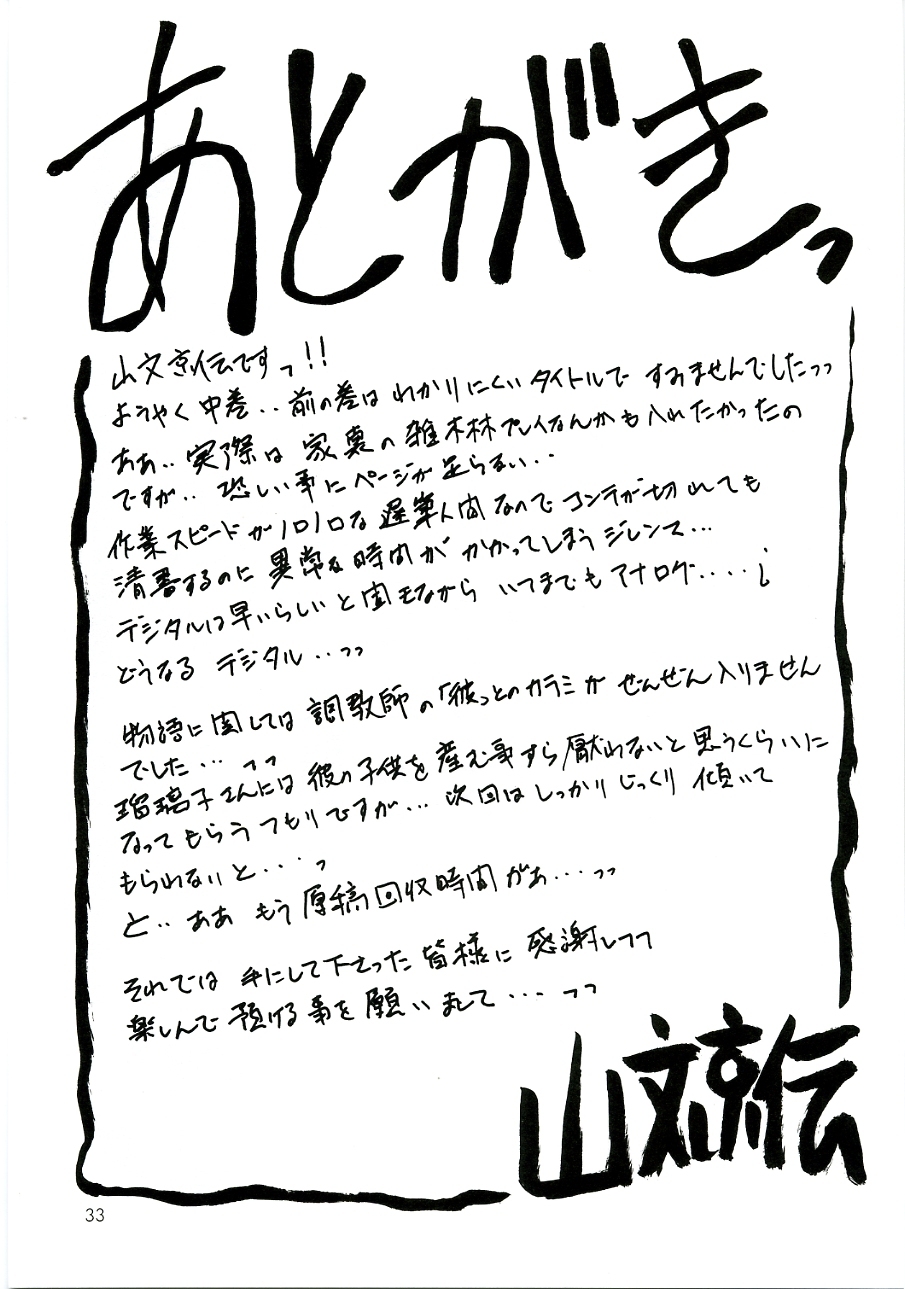 あとがきっ
山文京伝ですっ!!
ようやく中巻‥前の巻はわかりにくいタイトルですみませんでしたっっ
ああ‥実際は家裏の雑木林プレイなんかも入れたかったの
ですが‥恐しい事にページが足らない‥
作業スピードがノロノロな遅筆人間なのでコンテが切れても
清書するのに異常な時間がかかってしまうジレンマ…
デジタルは早いらしいと聞きながらいつまでもアナログ‥‥¿
どうなるデジタル‥っっ
物語に関しては調教師の「彼」とのカラミがぜんぜん入りません
でした…っっ
瑠璃子さんには彼の子供を産む事すら厭わないと思うくらいに
なってもらうつもりですが…次回はしっかりじっくり傾いて
もらわないと…っ
と‥ああもう原稿回収時間がぁ…っっ
それでは手にして下さった皆様に感謝しつつ
楽しんで預ける事を願いまして…っっ
山文京伝
33